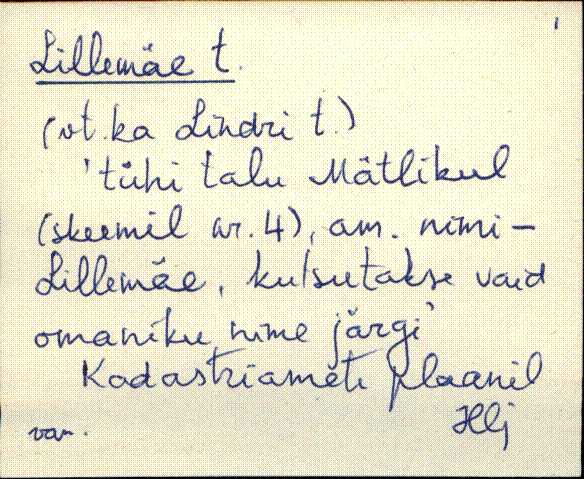 Lillemäe t.
(vt. ka Lindri t.)
'tühi talu Mätlikul
(skeemil nr. 4), am. nimi -
Lillemäe, kutsutakse vaid
omaniku nime järgi'
Kadastriameti plaanil
Hlj
van.